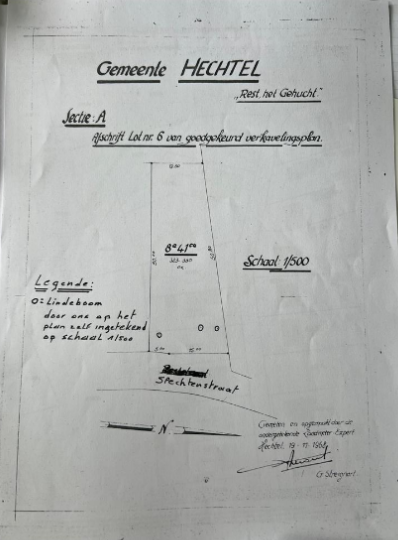 Gemeente HECHTEL
"Rest. het Gehucht."
Sectie: A
Afschrift Lot nr. 6 van goedgekeurd verkavelingsplan.
8ª 41ca
Schaal: 1/500
Legende:
O = Lindeboom
door ons op het
plan zelf ingetekend
op schaal 1/500
Slechtenstraat
N
Gemeten en opgemaakt door de
ondergetekende Landmeter Expert
Hechtel 19-11-